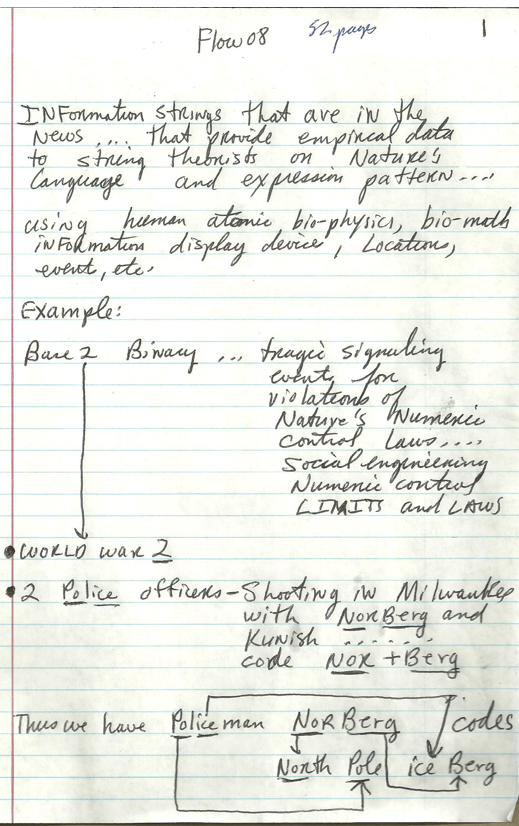 Flow 08 52 pages 1
INFormation strings that are in the
News .... that provide empirical data
to string theorists on Nature's
Language and expression pattern....
using human atomic bio-physics, bio-math
inFormation display device, Locations,
event, etc.
Example:
Base 2 Binary ... tragic signaling
event for
violations of
Nature's Numeric
control Laws....
Social engineering
Numeric control
LIMITS and LAWS
• WORLD war 2
• 2 Police officers - Shooting in Milwaukee
with NorBerg and
Kunish .......
code Nor + Berg
Thus we have Policeman NorBerg codes
North Pole ice Berg